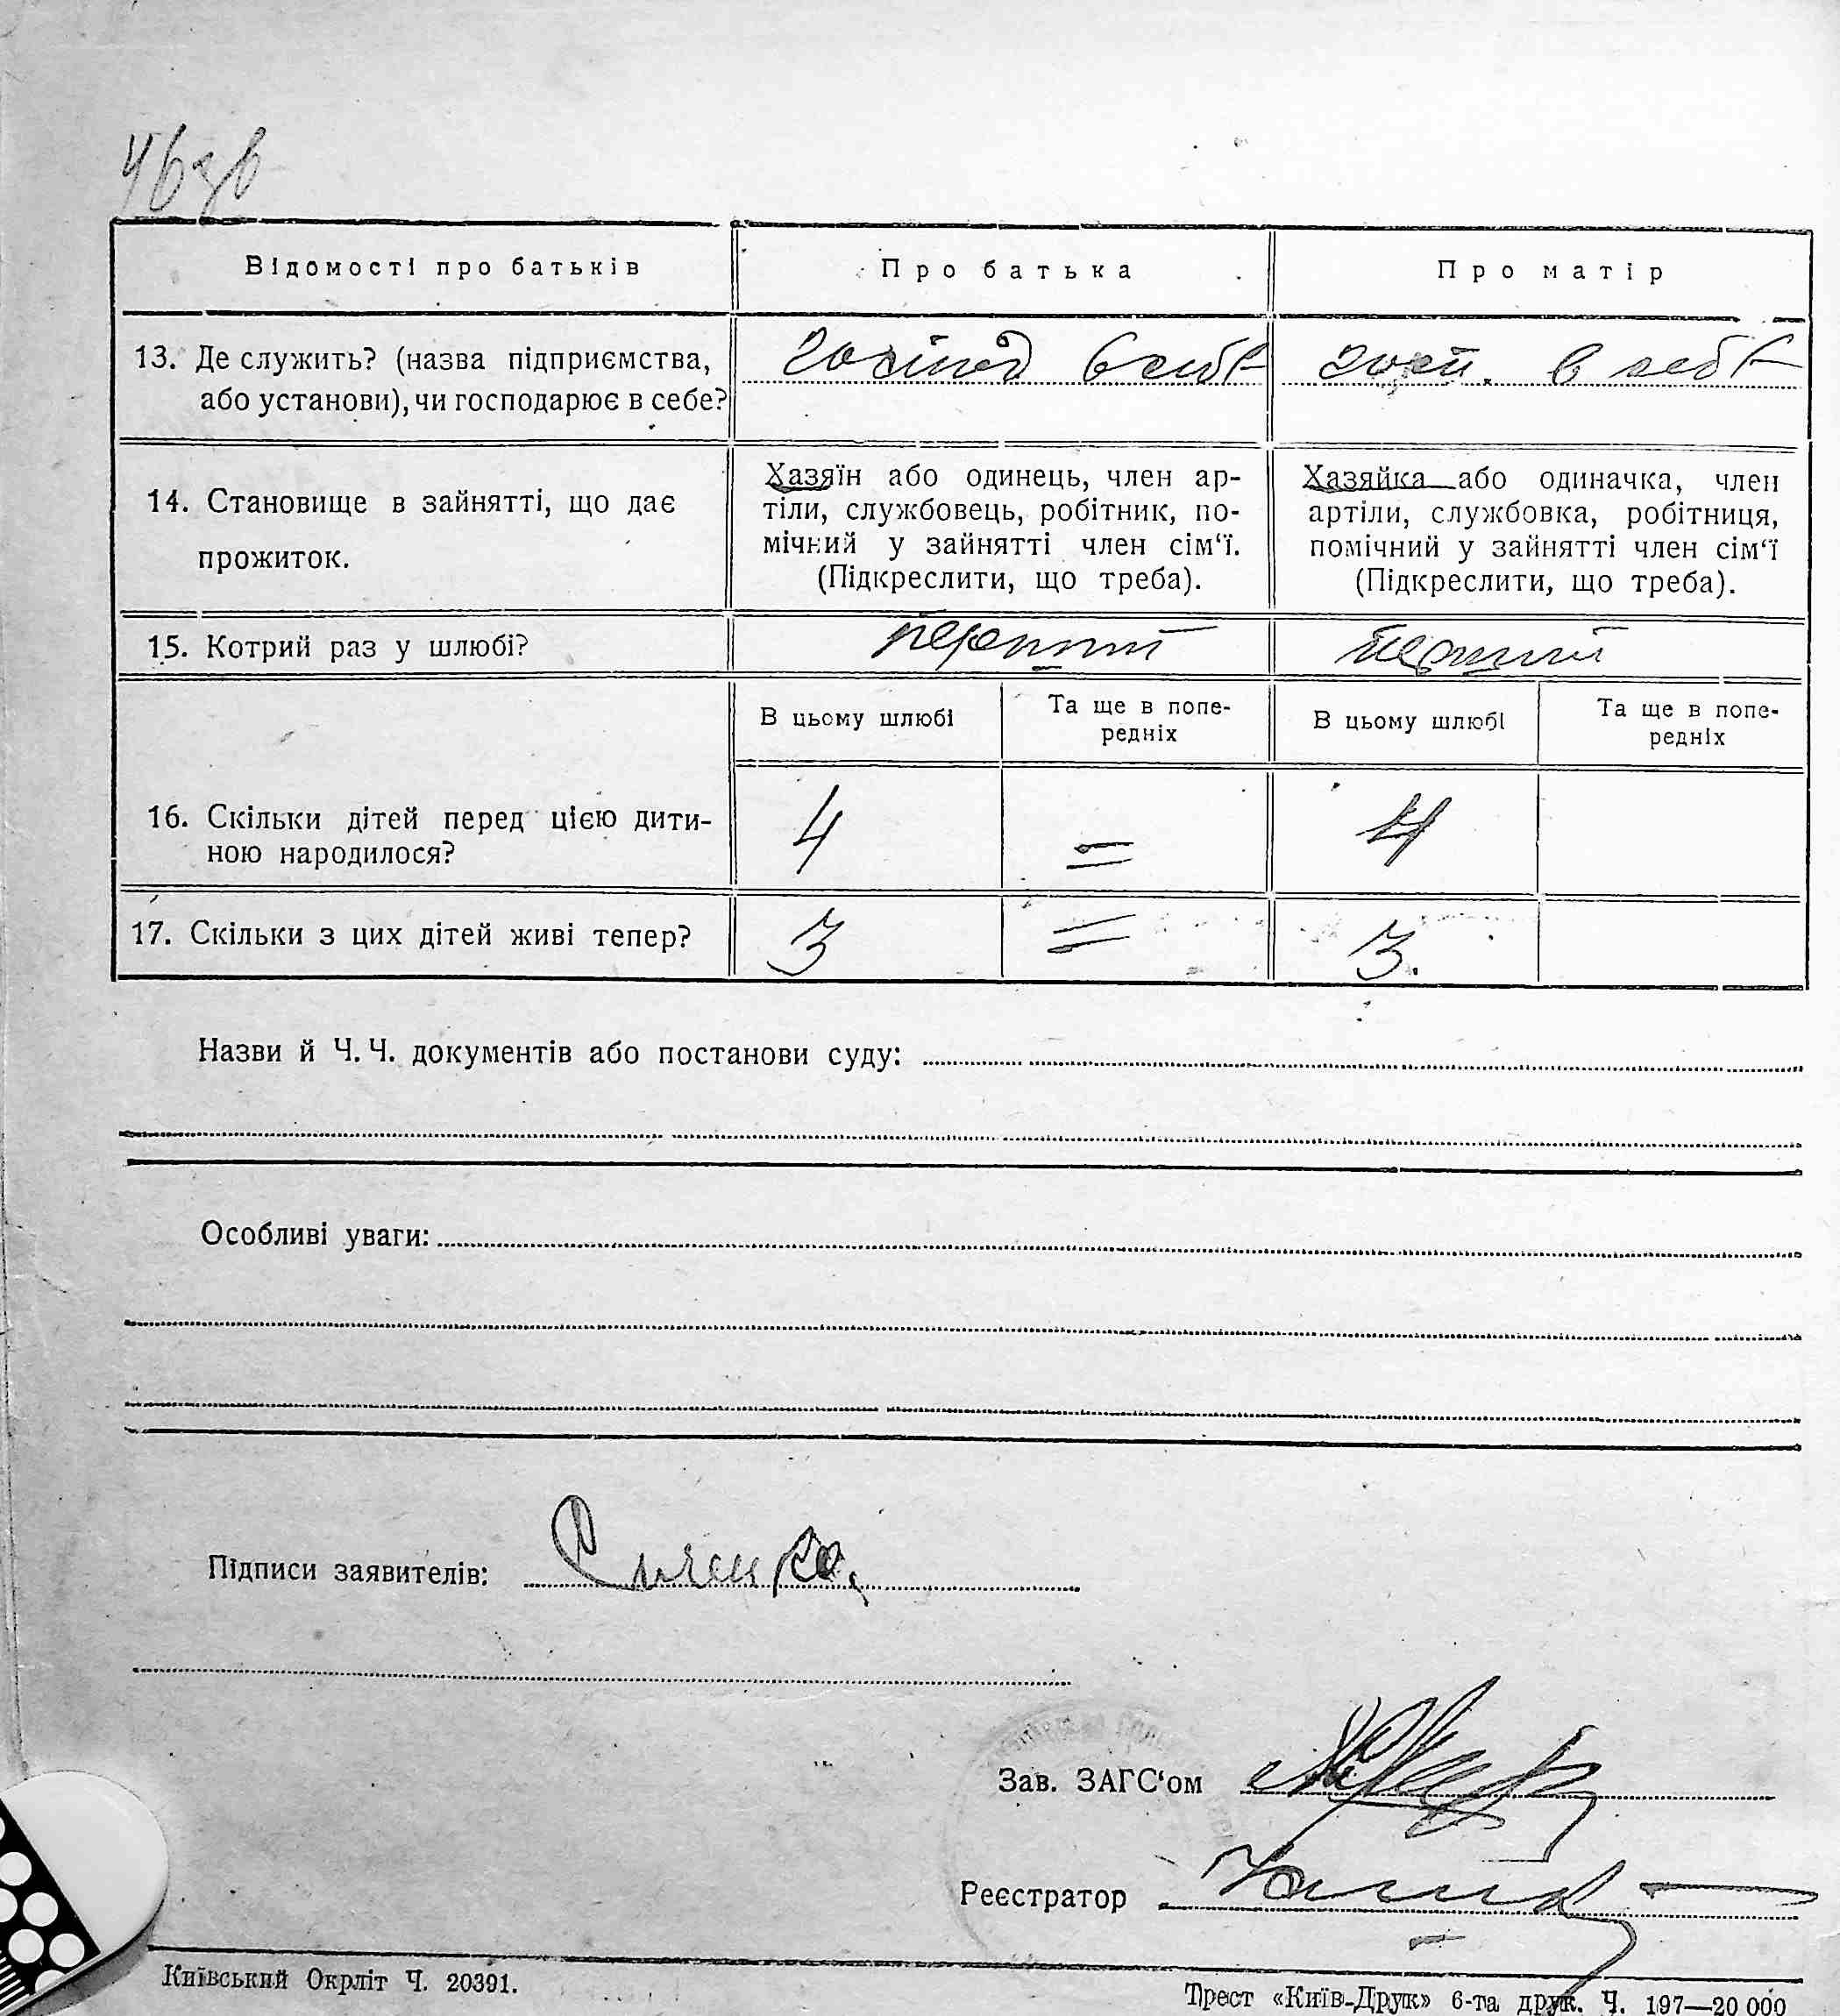 46 зв
Відомості про батьків
Про батька
Про матір
13. Де служить? (назва підприємства, або установи), чи господарює в себе?
господ в себе
госп. в себе
14. Становище в зайнятті, що дає прожиток.
Хазяїн або одинець, член ар-
тіли, службовець, робітник, по-
мічний у зайнятті член сім‘ї.
(Підкреслити, що треба).
Хазяйка або одиначка, член
артіли, службовка, робітниця,
помічний у зайнятті член сім‘ї
(Підкреслити, що треба).
15. Котрий раз у шлюбі?
перший
перший
В цьому шлюбі
Та ще в попе-
редніх
В цьому шлюбі
Та ще в попе-
редніх
16. Скільки дітей перед цією дити-
ною народилося?
4
=
4
17. Скільки з цих дітей живі тепер?
3
=
3.
Назви й Ч. Ч. документів або постанови суду:
Особливі уваги:
Підписи заявителів:
Зав. ЗАГС‘ом
Реєстратор
Київський Окрліт Ч. 20391.
Трест «Київ-Друк» 6-та друк. Ч. 197—20 000